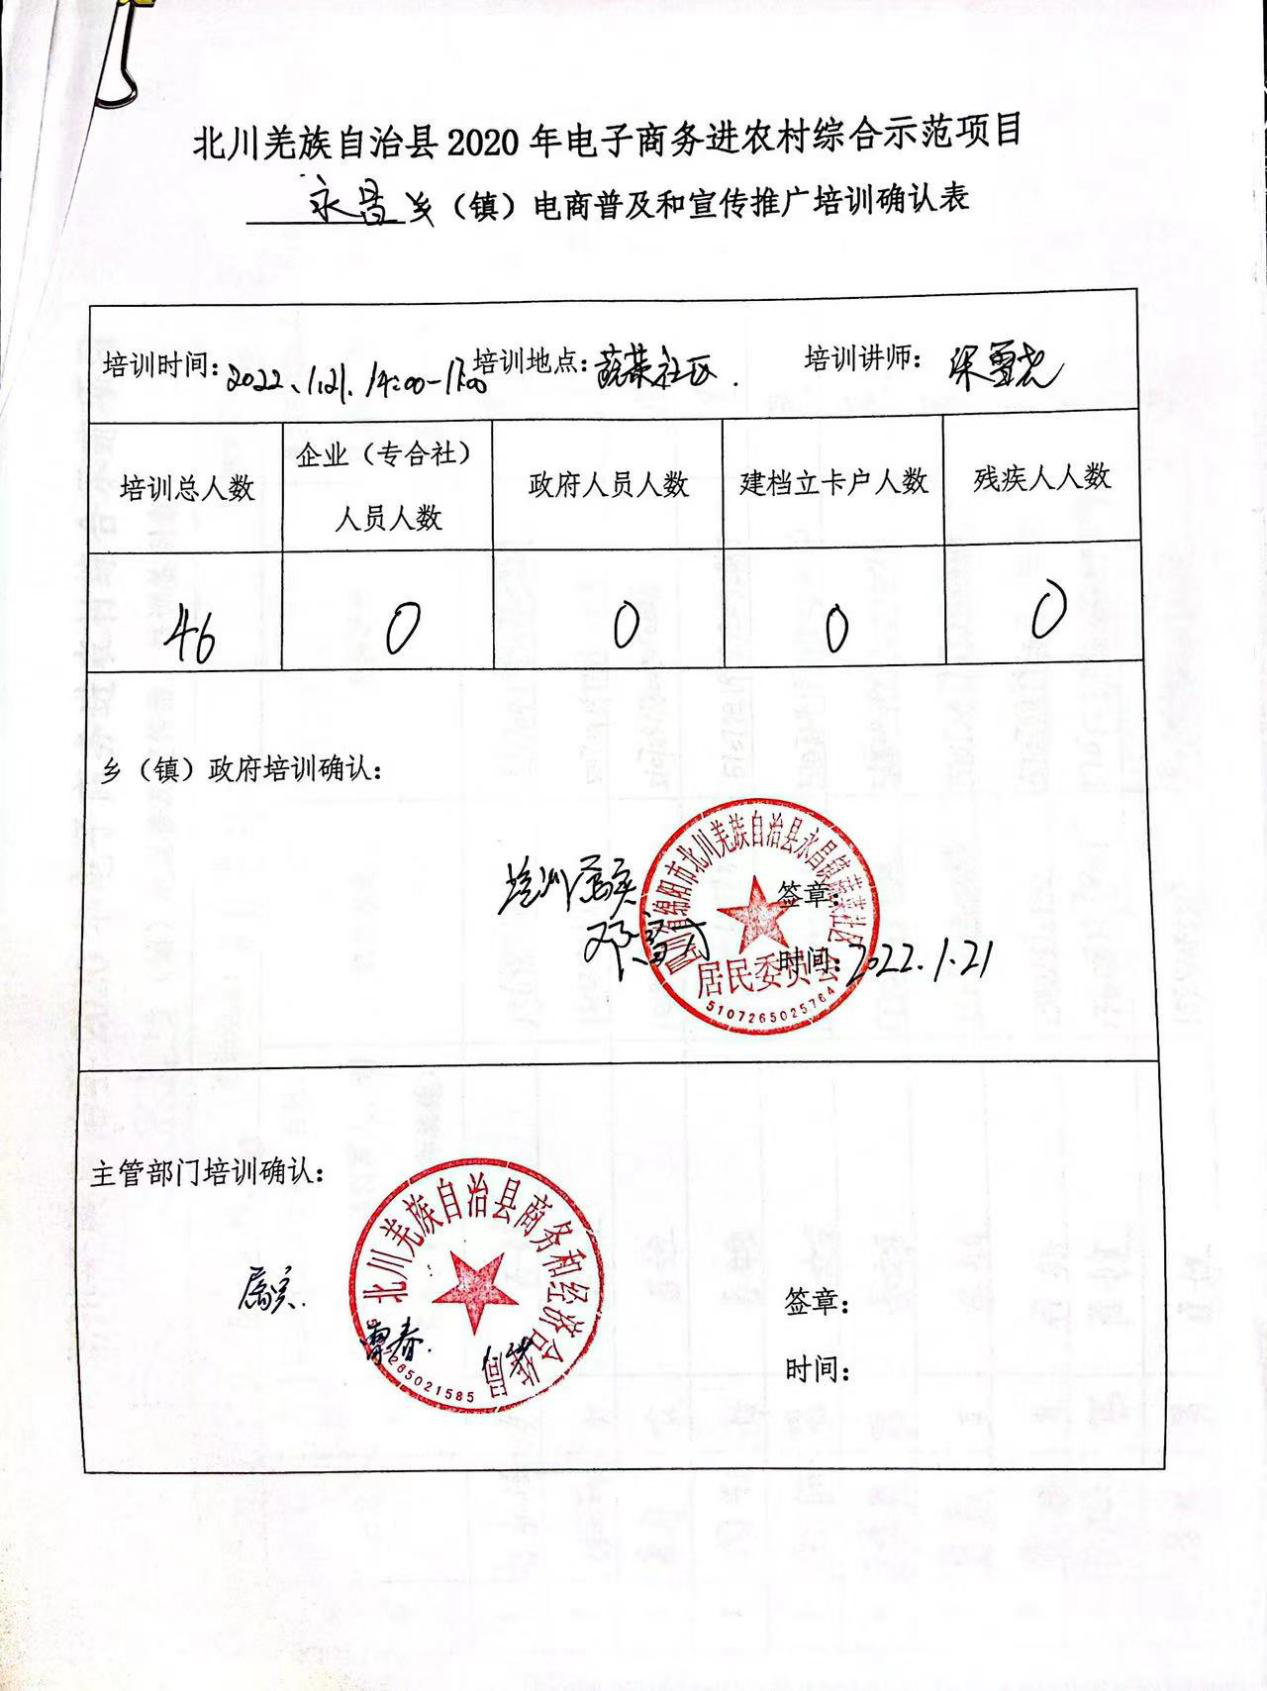 北川羌族自治县2020年电子商务进农村综合示范项目
永昌乡（镇）电商普及和宣传推广培训确认表
培训时间：2022、1.21. 14:00-17:00 培训地点：蔬菜社区. 培训讲师：
培训总人数 企业（专合社）人员人数 政府人员人数 建档立卡户人数 残疾人人数
46 0 0 0 0
乡（镇）政府培训确认：
四川省绵阳市北川羌族自治县永昌镇蔬菜社区
培训属实
签章：
时间：2022.1.21
居民委员会
5107265025764
主管部门培训确认：
北川羌族自治县商务和经济合作局
属实.
签章：
时间：